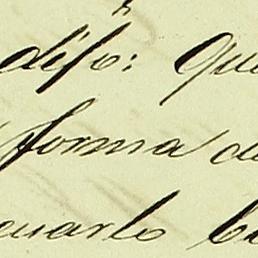 dijo: Que
forma de
cuarto